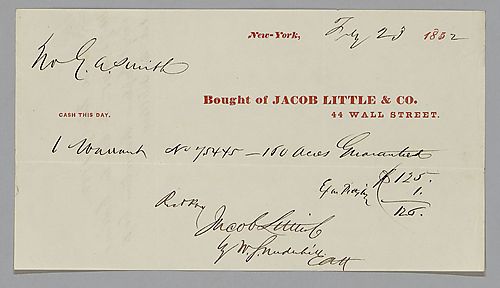 New-York, Feby 23 1852
G. A. Smith
Bought of JACOB LITTLE & CO.
CASH THIS DAY.
44 WALL STREET.
1 Warrant No 75445 - 160 Acres Guaranteed
$ 125.
1.
126.
Recd Pay
Jacob Little & Co
by W.